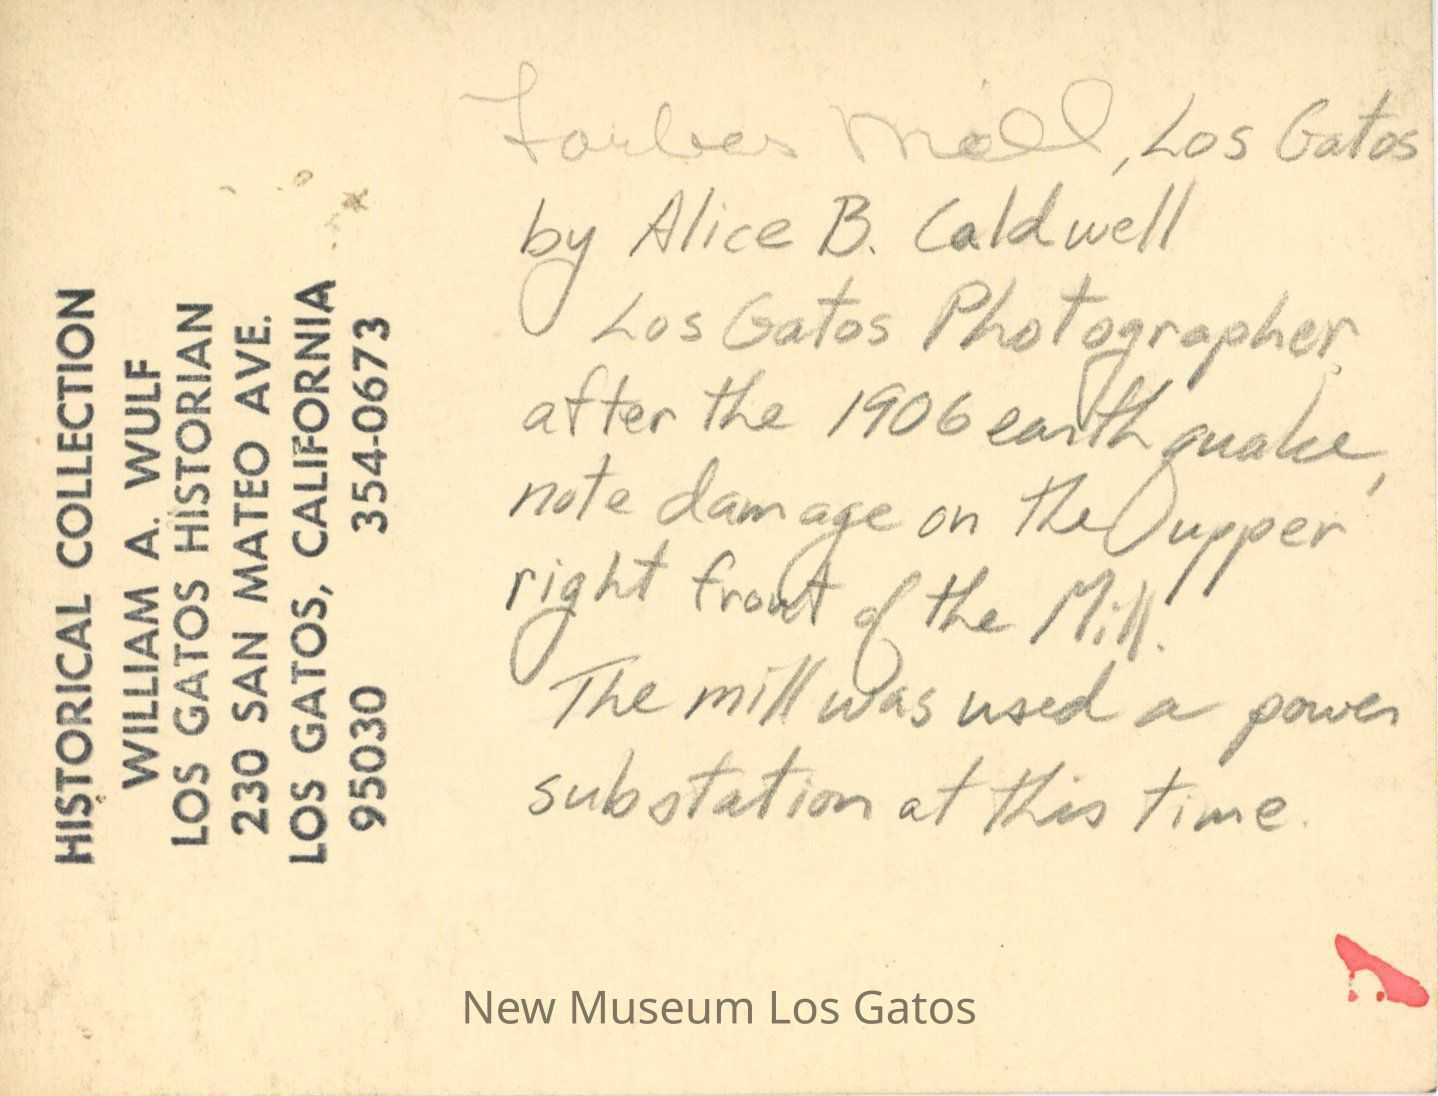 HISTORICAL COLLECTION
WILLIAM A. WULF
LOS GATOS HISTORIAN
230 SAN MATEO AVE.
LOS GATOS, CALIFORNIA
95030 354-0673
Forbes Mill, Los Gatos
by Alice B. Caldwell
Los Gatos Photographer
after the 1906 earthquake,
note damage on the upper
right front of the Mill.
The mill was used a power
substation at this time.
New Museum Los Gatos